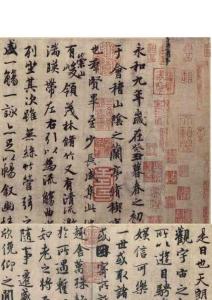 永和九年歲在癸丑暮春之初
于會稽山陰之蘭亭脩稧
也羣賢畢至少長咸集
有崇山峻領茂林脩竹又有清流激
湍暎帶左右引以為流觴曲
列坐其次雖無絲竹管弦
盛一觴一詠亦足以暢敘幽
是日也天朗
觀宇宙之
娛信可樂
一世或取諸
或因寄所
趣舍萬殊
於所遇輒
知老之將
隨事遷
欣俛仰之